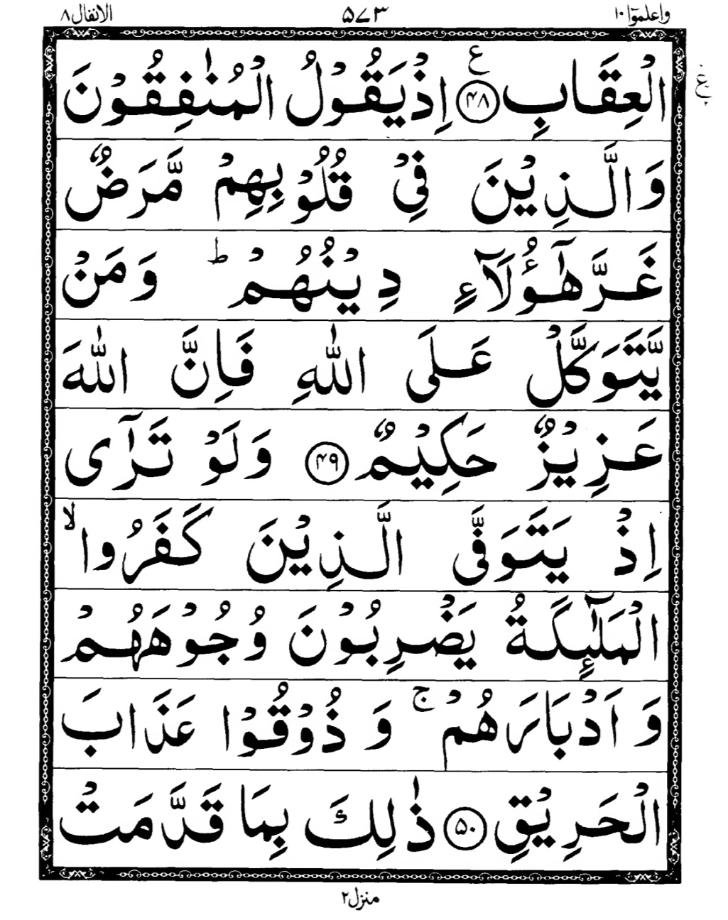 واعلموٓا ۱۰ ۵۷۳ الانفال ۸
الْعِقَابِ ﴿۴۸﴾ ع اِذْ يَقُوْلُ الْمُنٰفِقُوْنَ
وَالَّذِيْنَ فِيْ قُلُوْبِهِمْ مَّرَضٌ
غَرَّ هٰٓؤُلَآءِ دِيْنُهُمْ ؕ وَمَنْ
يَّتَوَكَّلْ عَلَى اللّٰهِ فَاِنَّ اللّٰهَ
عَزِيْزٌ حَكِيْمٌ ﴿۴۹﴾ وَلَوْ تَرٰٓى
اِذْ يَتَوَفَّى الَّذِيْنَ كَفَرُوا ۙ
الْمَلٰٓئِكَةُ يَضْرِبُوْنَ وُجُوْهَهُمْ
وَ اَدْبَارَهُمْ ۚ وَ ذُوْقُوْا عَذَابَ
الْحَرِيْقِ ﴿۵۰﴾ ذٰلِكَ بِمَا قَدَّمَتْ
منزل ۲